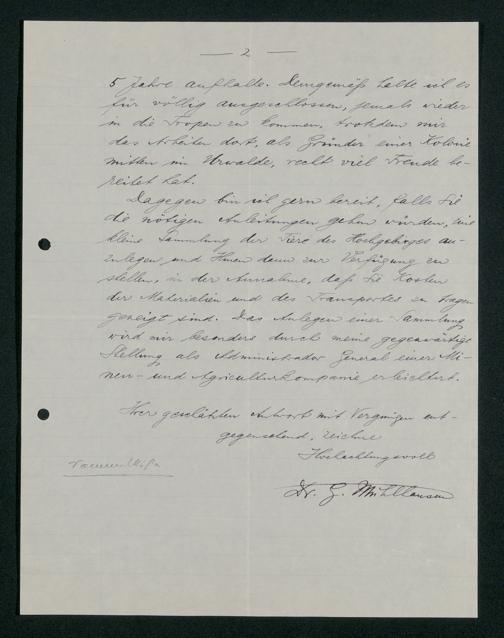 — 2 —
5 Jahre aufhalte. Demgemäß halte ich es
für völlig ausgeschlossen, jemals wieder
in die Tropen zu kommen, trotzdem mir
das Arbeiten dort, als Gründer einer Kolonie
mitten im Urwalde, recht viel Freude be-
reitet hat.
Dagegen bin ich gern bereit, falls Sie
die nötigen Anleitungen geben würden, eine
kleine Sammlung der Tiere des Hochgebirges an-
zulegen und Ihnen dann zur Verfügung zu
stellen, in der Annahme, daß Sie Kosten
der Materialien und des Transportes zu tragen
geneigt sind. Das Anlegen einer Sammlung
wird mir besonders durch meine gegenwärtige
Stellung als Administrador General einer Mi-
nen- und Agriculturkompanie erleichtert.
Ihrer geschätzten Antwort mit Vergnügen ent-
gegensehend, zeichne
Hochachtungsvoll
Dr. G. Mühlhausen